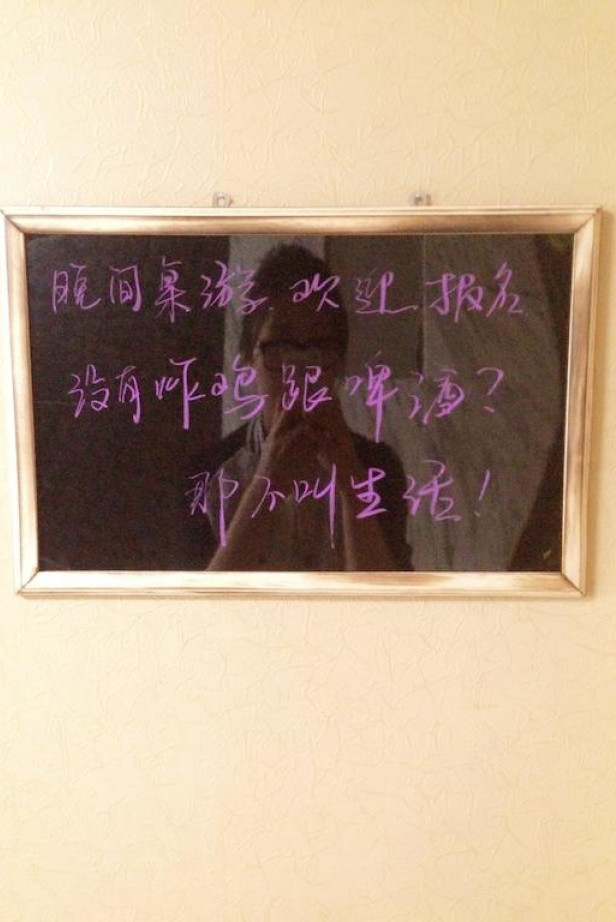 晚间桌游 欢迎报名
没有咋鸡跟啤酒?
那不叫生活!